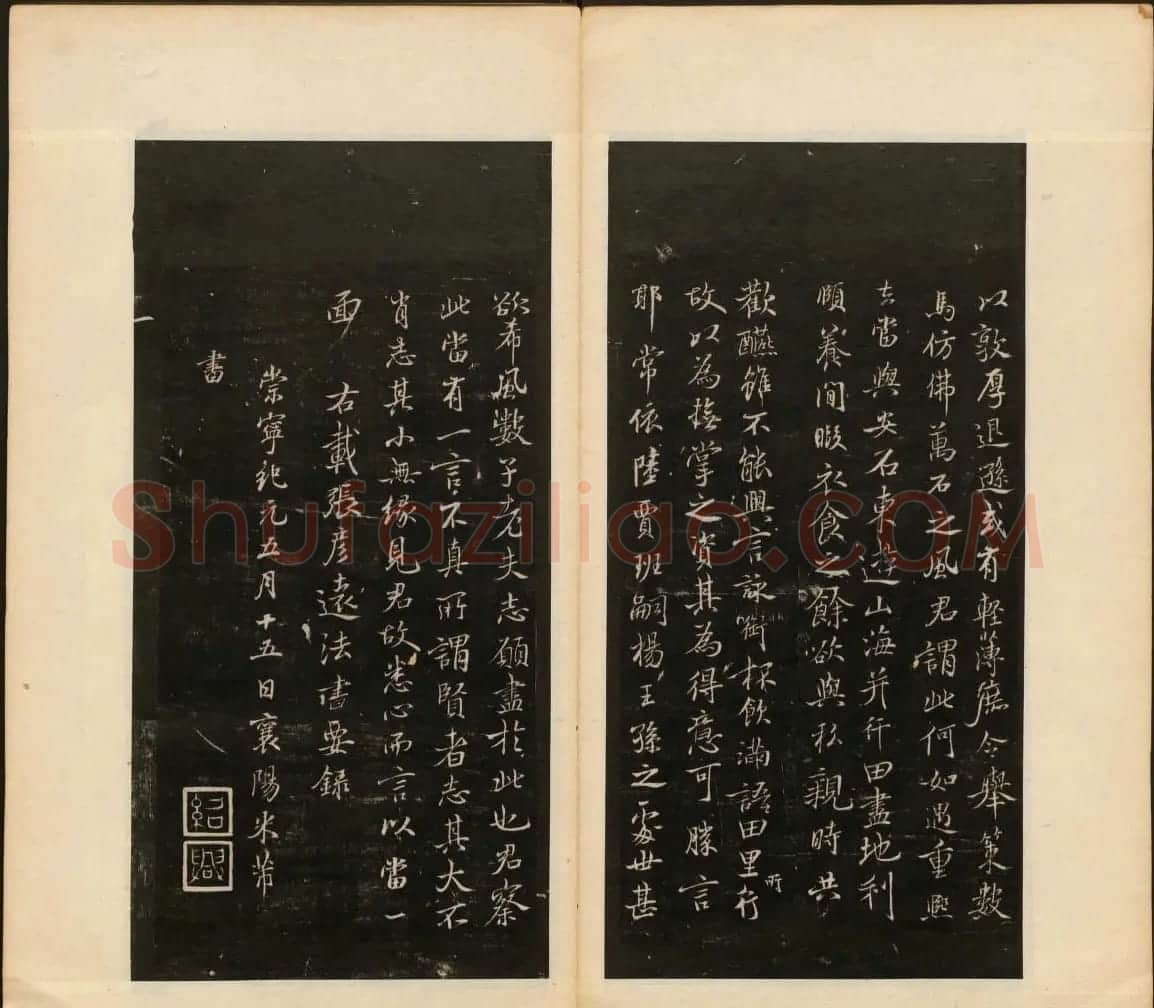 以敦厚退遜或有輕薄庶令舉策數
馬仿佛萬石之風君謂此何如遇重熙
去當與安石東遊山海并行田盡地利
頤養閒暇衣食之餘欲與親時共
歡醼雖不能興言詠銜杯飲滿語田里行
所
故以為撫掌之資其為得意可勝言
耶常依陸賈班嗣楊王孫之處世甚
欲希風數子老夫志願盡於此也君察
此當有一言不真所謂賢者志其大不
肖志其小無緣見君故悉心而言以當一
面
右載張彦遠法書要錄
崇寧紀元五月十五日襄陽米芾
書
紹興
Shufaziliao.COM